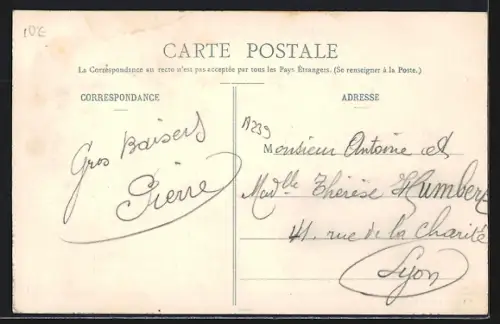 10€
CARTE POSTALE
La Correspondance au recto n'est pas acceptée par tous les Pays Étrangers. (Se renseigner à la Poste.)
CORRESPONDANCE
Gros Baisers
Pierre
ADRESSE
A239
Monsieur Antoine et
Mad^lle Thérèse Humbert
41, rue de la Charité
Lyon